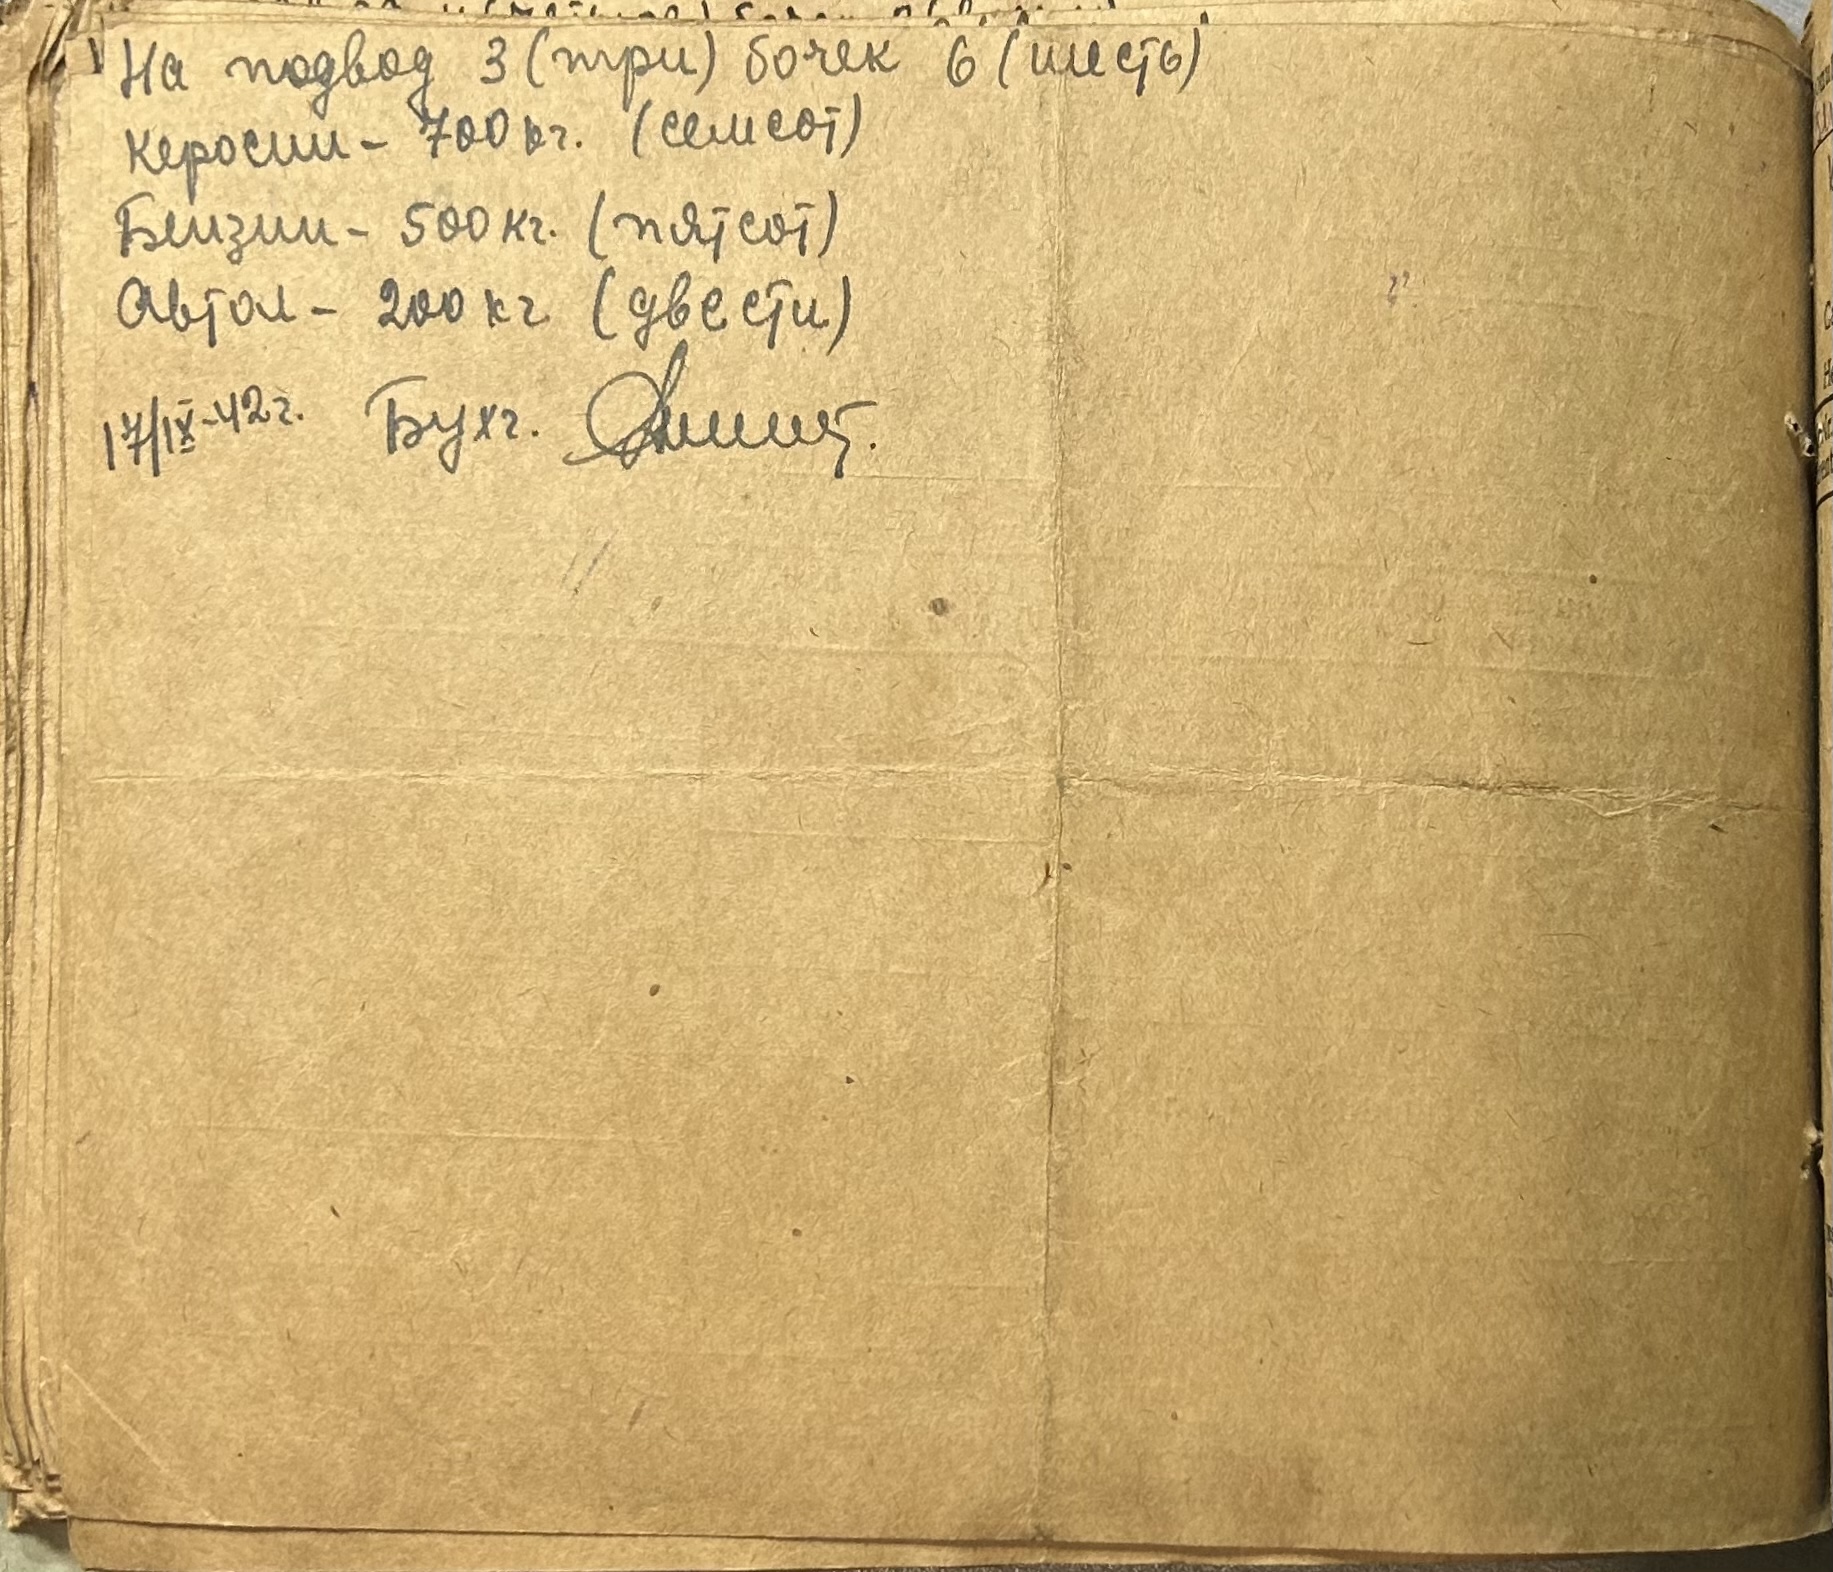 На подвод 3 (три) бочек 6 (шесть)
керосин - 700 кг. (семсот)
Бензин - 500 кг. (пятсот)
Автол - 200 кг (двести)
17/IX-42 г. Бухг.